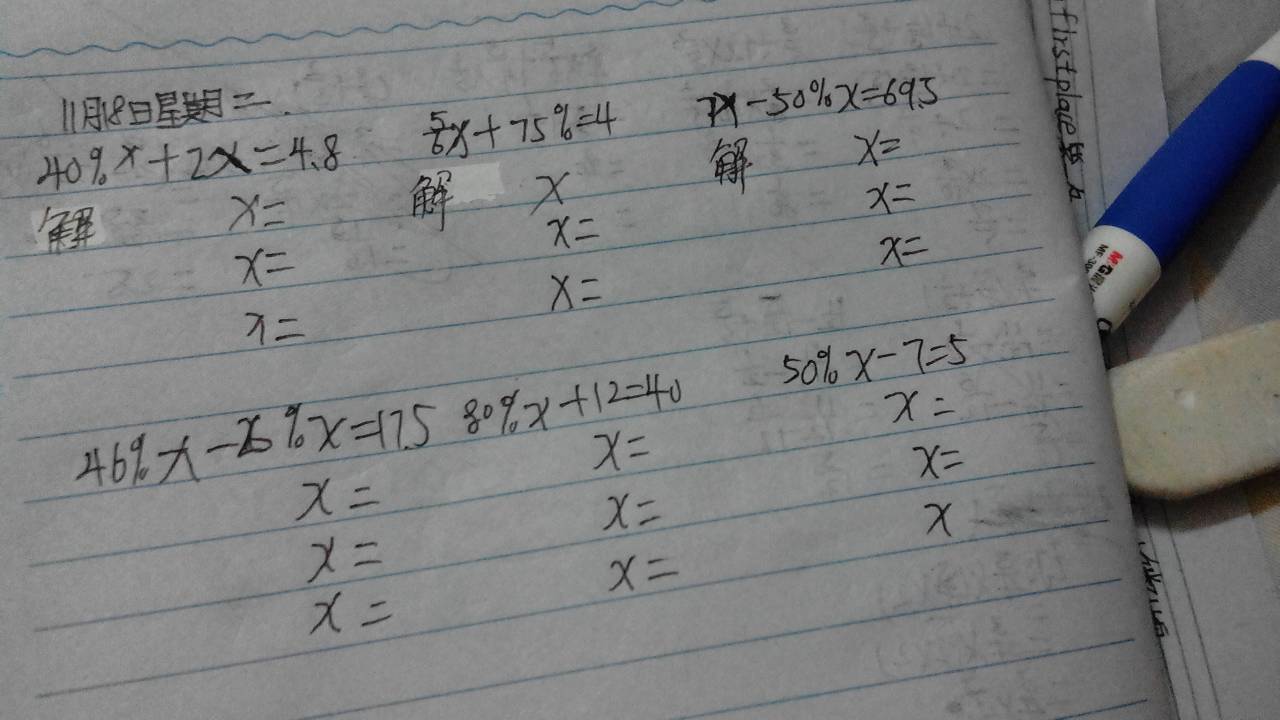 11月18日星期二.
40%x+2x=4.8
解 x=
x=
x=
5/6x+75%=4
解 x
x=
x=
7x-50%x=69.5
解 x=
x=
x=
46%x-%x=17.5
x=
x=
x=
80%x+12=40
x=
x=
x=
50%x-7=5
x=
x=
x
firstplace
M&G